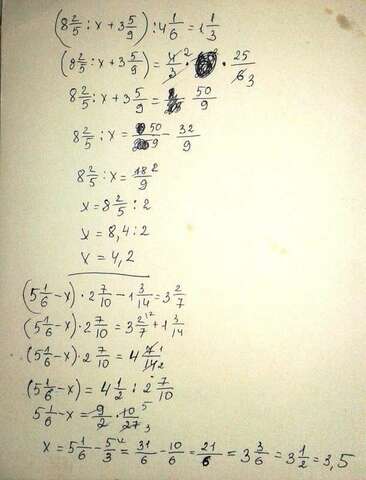 (8 2/5 : x + 3 5/9) : 4 1/6 = 1 1/3
(8 2/5 : x + 3 5/9) = 4/3 · 25/6
8 2/5 : x + 3 5/9 = 50/9
8 2/5 : x = 50/9 - 32/9
8 2/5 : x = 18/9 2
x = 8 2/5 : 2
x = 8,4 : 2
x = 4,2
(5 1/6 - x) · 2 7/10 - 1 3/14 = 3 2/7
(5 1/6 - x) · 2 7/10 = 3 2/7 + 1 3/14
(5 1/6 - x) · 2 7/10 = 4
(5 1/6 - x) = 4 1/2 : 2 7/10
5 1/6 - x = 9/2 · 10/27
x = 5 1/6 - 5/3 = 31/6 - 10/6 = 21/6 = 3 3/6 = 3 1/2 = 3,5